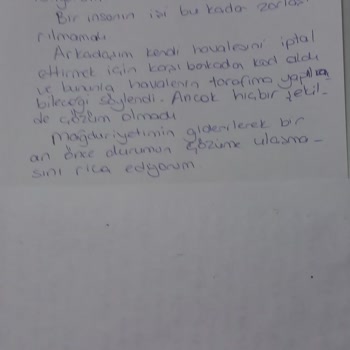 Bir insanın işi bu kadar zorlaş-
tırılmamalı.
Arkadaşım kendi havalesini iptal
ettirmek için karşı bankadan kod aldı
ve bununla havalenin tarafıma yapıla
bileceği söylendi. Ancak hiçbir şekil-
de çözüm olmadı
Mağduriyetimin giderilerek bir
an önce durumun çözüme ulaşma-
sını rica ediyorum.